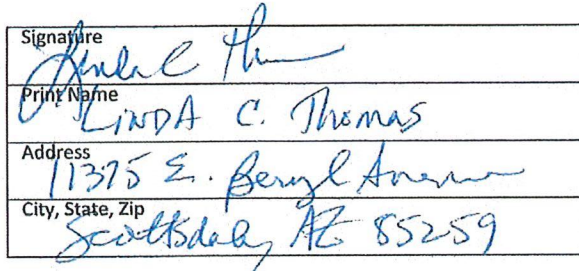 Signature
Linda C Thomas
Print Name
LINDA C. Thomas
Address
11375 E. Beryl Avenue
City, State, Zip
Scottsdale, AZ 85259